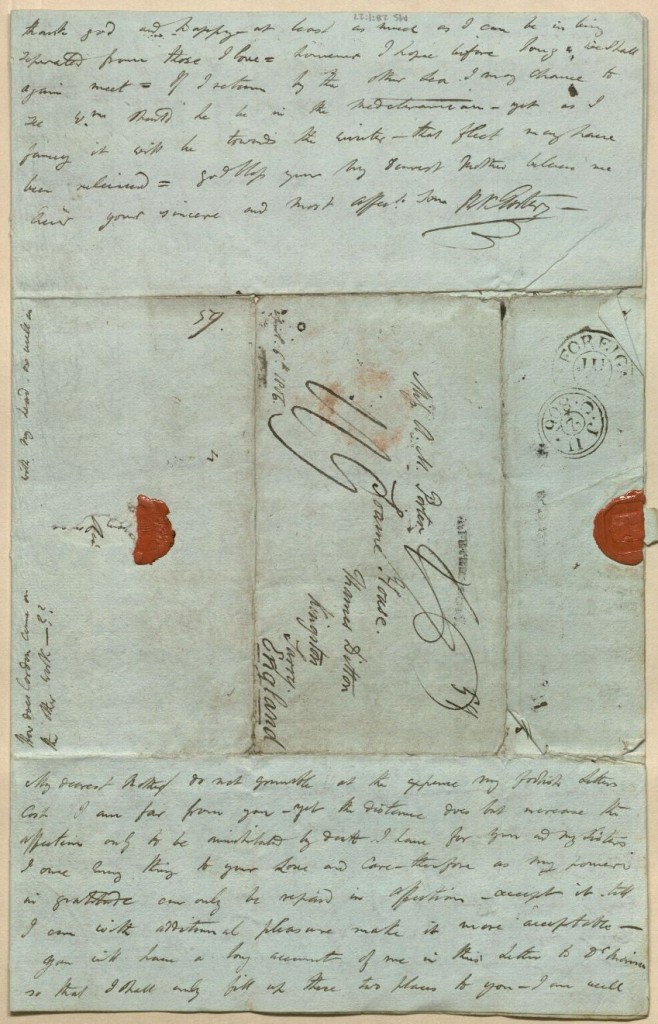 thank god and happy - at least as much as I can be in being
seperated from those I love = however I hope before long we shall
again meet = If I return by the other sea I may chance to
see Wm should he be in the Mediteranean - yet as I
fancy it will be towards the winter - that fleet may have
been releived = god bless you my Dearest Mother beleive me
ever your sincere and most affect. Son R K Porter -
with my head as well as
How does Gordon come on
the other work - ??
59.
Miss A. M. Porter
Thame House.
Thames Ditton
Kingston
Surry.
England
FOREIGN
JU
11
806
My dearest Mother do not grumble at the expence my foolish letters
Cost I am far from you - yet the distance does but increase the
affection only to be annihilated by death I have for you and my Sisters
I owe every thing to your Love and Care - therefore as my powers
in gratitude can only be repaid in affection - accept it till
I can with additional pleasure make it more acceptable -
you will have a long account of me in this letter to Dr
so that I shall only fill up these two places to you - I am well